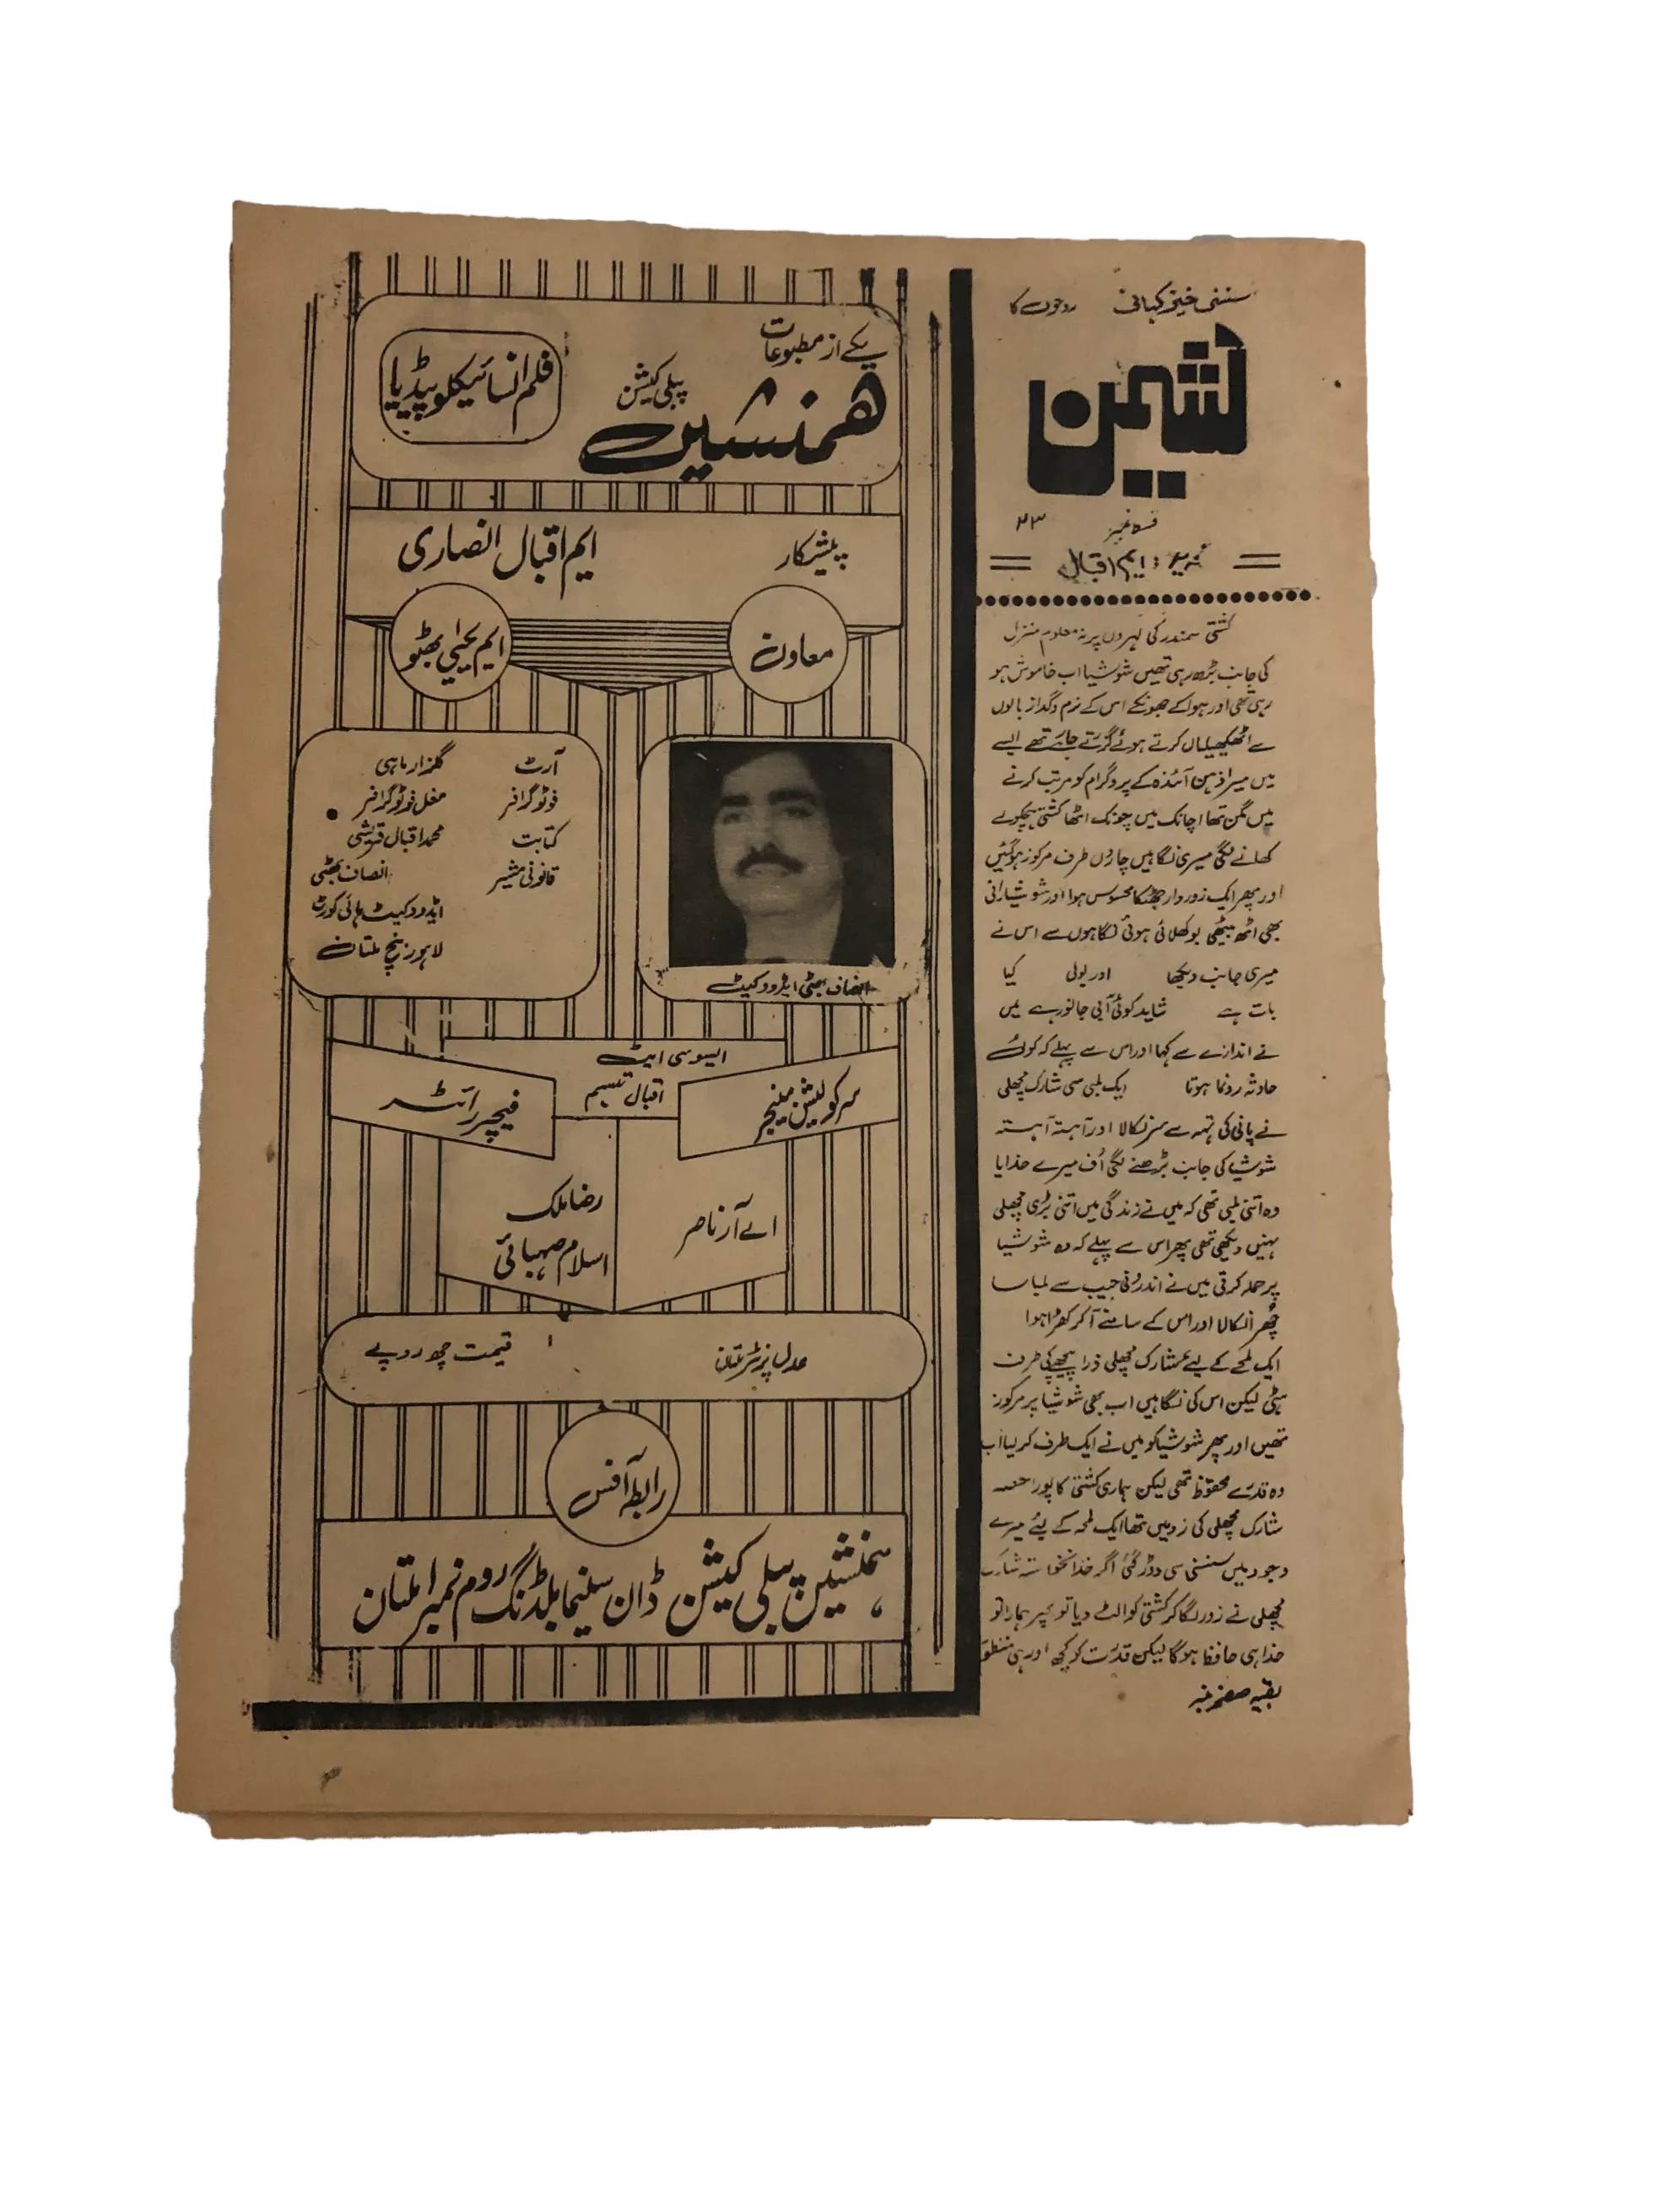 سنسنی خیز کہانی روحوں کا
نشیمن
قسط نمبر ۲۳
تحریر: ایم اقبال
کشتی سمندر کی لہروں پر نہ معلوم منزل
کی جانب بڑھ رہی تھیں شوشیا اب خاموش ہو
رہی تھی اور ہوا کے جھونکے اس کے نرم و گداز بالوں
سے اٹھکھیلیاں کرتے ہوئے گزرتے جا رہے تھے ایسے
میں میرا ذہن آئندہ کے پروگرام کو مرتب کرنے
میں مگن تھا اچانک میں چونک اٹھا کشتی ہچکولے
کھانے لگی میری نگاہیں چاروں طرف مرکوز ہوگئیں
اور پھر ایک زور دار جھٹکا محسوس ہوا اور شوشیارانی
بھی اٹھ بیٹھی بوکھلائی ہوئی نگاہوں سے اس نے
میری جانب دیکھا اور بولی کیا
بات ہے شاید کوئی آبی جانور ہے میں
نے اندازے سے کہا اور اس سے پہلے کہ کوئی
حادثہ رونما ہوتا ایک لمبی سی شارک مچھلی
نے پانی کی تہہ سے سر نکالا اور آہستہ آہستہ
شوشیا کی جانب بڑھنے لگی اُف میرے خدایا
وہ اتنی لمبی تھی کہ میں نے زندگی میں اتنی بڑی مچھلی
نہیں دیکھی تھی پھر اس سے پہلے کہ وہ شوشیا
پر حملہ کرتی میں نے اندرونی جیب سے لمبا سا
چُھرا نکالا اور اس کے سامنے آکر کھڑا ہوا
ایک لمحے کے لیئے شارک مچھلی ذرا پیچھے کی طرف
ہٹی لیکن اس کی نگاہیں اب بھی شوشیا پر مرکوز
تھیں اور پھر شوشیا کو میں نے ایک طرف کر لیا اب
وہ قدرے محفوظ تھی لیکن ہماری کشتی کا پورا حصہ
شارک مچھلی کی زد میں تھا ایک لمحہ کے لیئے میرے
وجود میں سنسنی سی دوڑ گئی اگر خدانخواستہ شارک
مچھلی نے زور لگا کر کشتی کو الٹ دیا تو پھر ہمارا تو
خدا ہی حافظ ہوگا لیکن قدرت کو کچھ اور ہی منظور
بقیہ صفحہ نمبر
یکے از مطبوعات
ھمنشیں پبلی کیشن
فلم انسائیکلوپیڈیا
پیشکار ایم اقبال انصاری
معاون ایم یحیٰی بھٹو
آرٹ گلزار ماہی
فوٹوگرافر مغل فوٹوگرافر
کتابت محمد اقبال قریشی
قانونی مشیر انصاف بھٹی
ایڈووکیٹ ہائی کورٹ
لاہور بنچ ملتان
انصاف بھٹی ایڈووکیٹ
ایسوسی ایٹ
اقبال تبسم
سرکولیشن مینجر
اے آر ناصر
فیچر رائٹر
رضا ملک
اسلام صہبائی
عدل پرنٹرز ملتان قیمت چھ روپے
رابطہ آفس
ہمنشیں پبلی کیشن ڈان سینما بلڈنگ روم نمبر ۱ ملتان